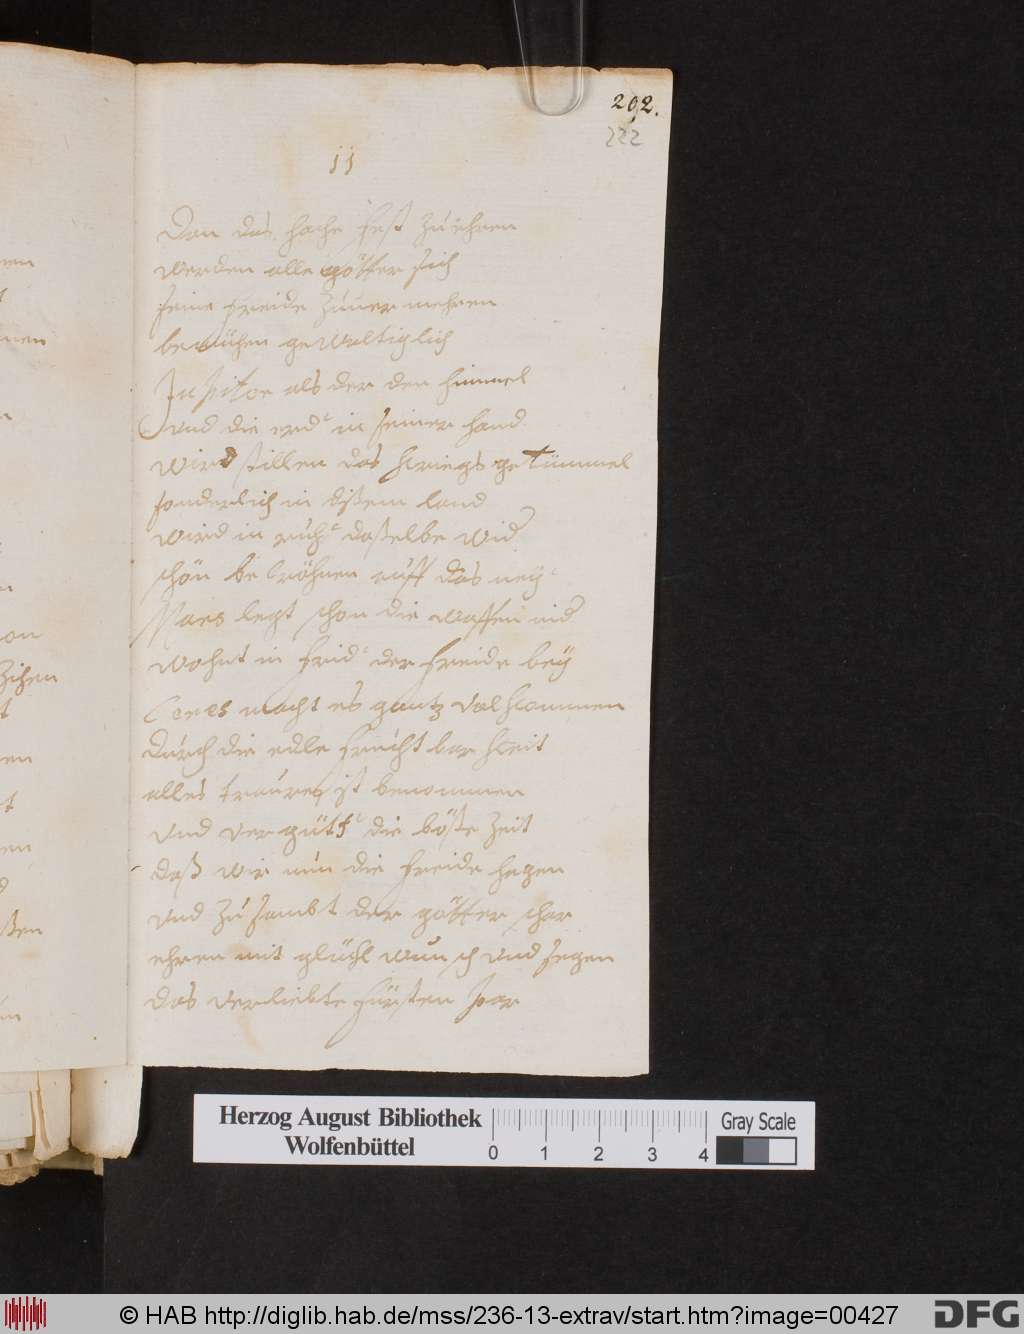 292.
222
11
Dan das hohe fest zu ehren
werden alle götter sich
seine freide zuuermehren
bemühen gewaltiglich
Jupiter als der den himmel
und die erd' in seiner hand
wird stillen das kriegs getümmel
sonderlich in dißem land
wird in ruh' daßelbe wider
schön be kröhnen auff das ney'
Mars legt schon die waffen nider
wohnt in frid' der freide bey
Ceres macht es gantz vol kommen
durch die edle frucht bar keit
alles trauren ist benommen
und ver güt' die böße zeit
daß wir nun die freide hegen
und zu sambt der götter schar
ehren mit glück wunsch und segen
das verliebte fürsten paar
Herzog August Bibliothek
Wolfenbüttel
0 1 2 3 4
Gray Scale
© HAB http://diglib.hab.de/mss/236-13-extrav/start.htm?image=00427
DFG